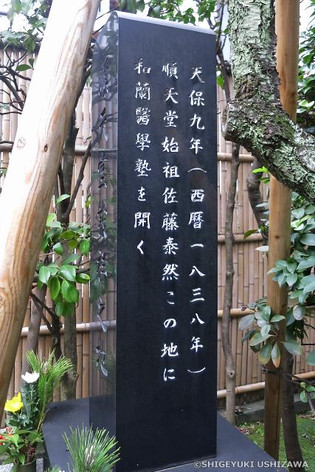 天保九年(西暦一八三八年)
順天堂始祖佐藤泰然この地に
和蘭醫學塾を開く
©SHIGEYUKI USHIZAWA